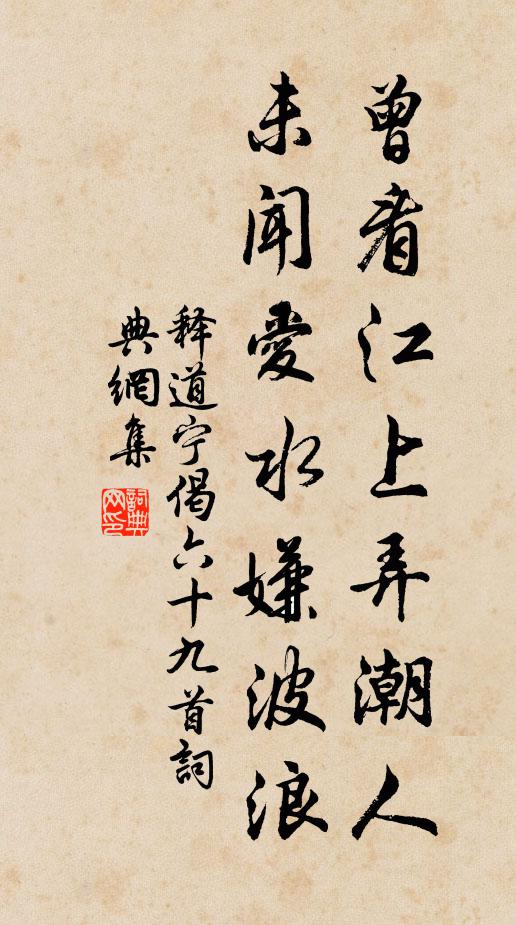 曾看江上弄潮人
未聞愛水嫌波浪
释道宁偈六十九首詞
典網集
詞典網印